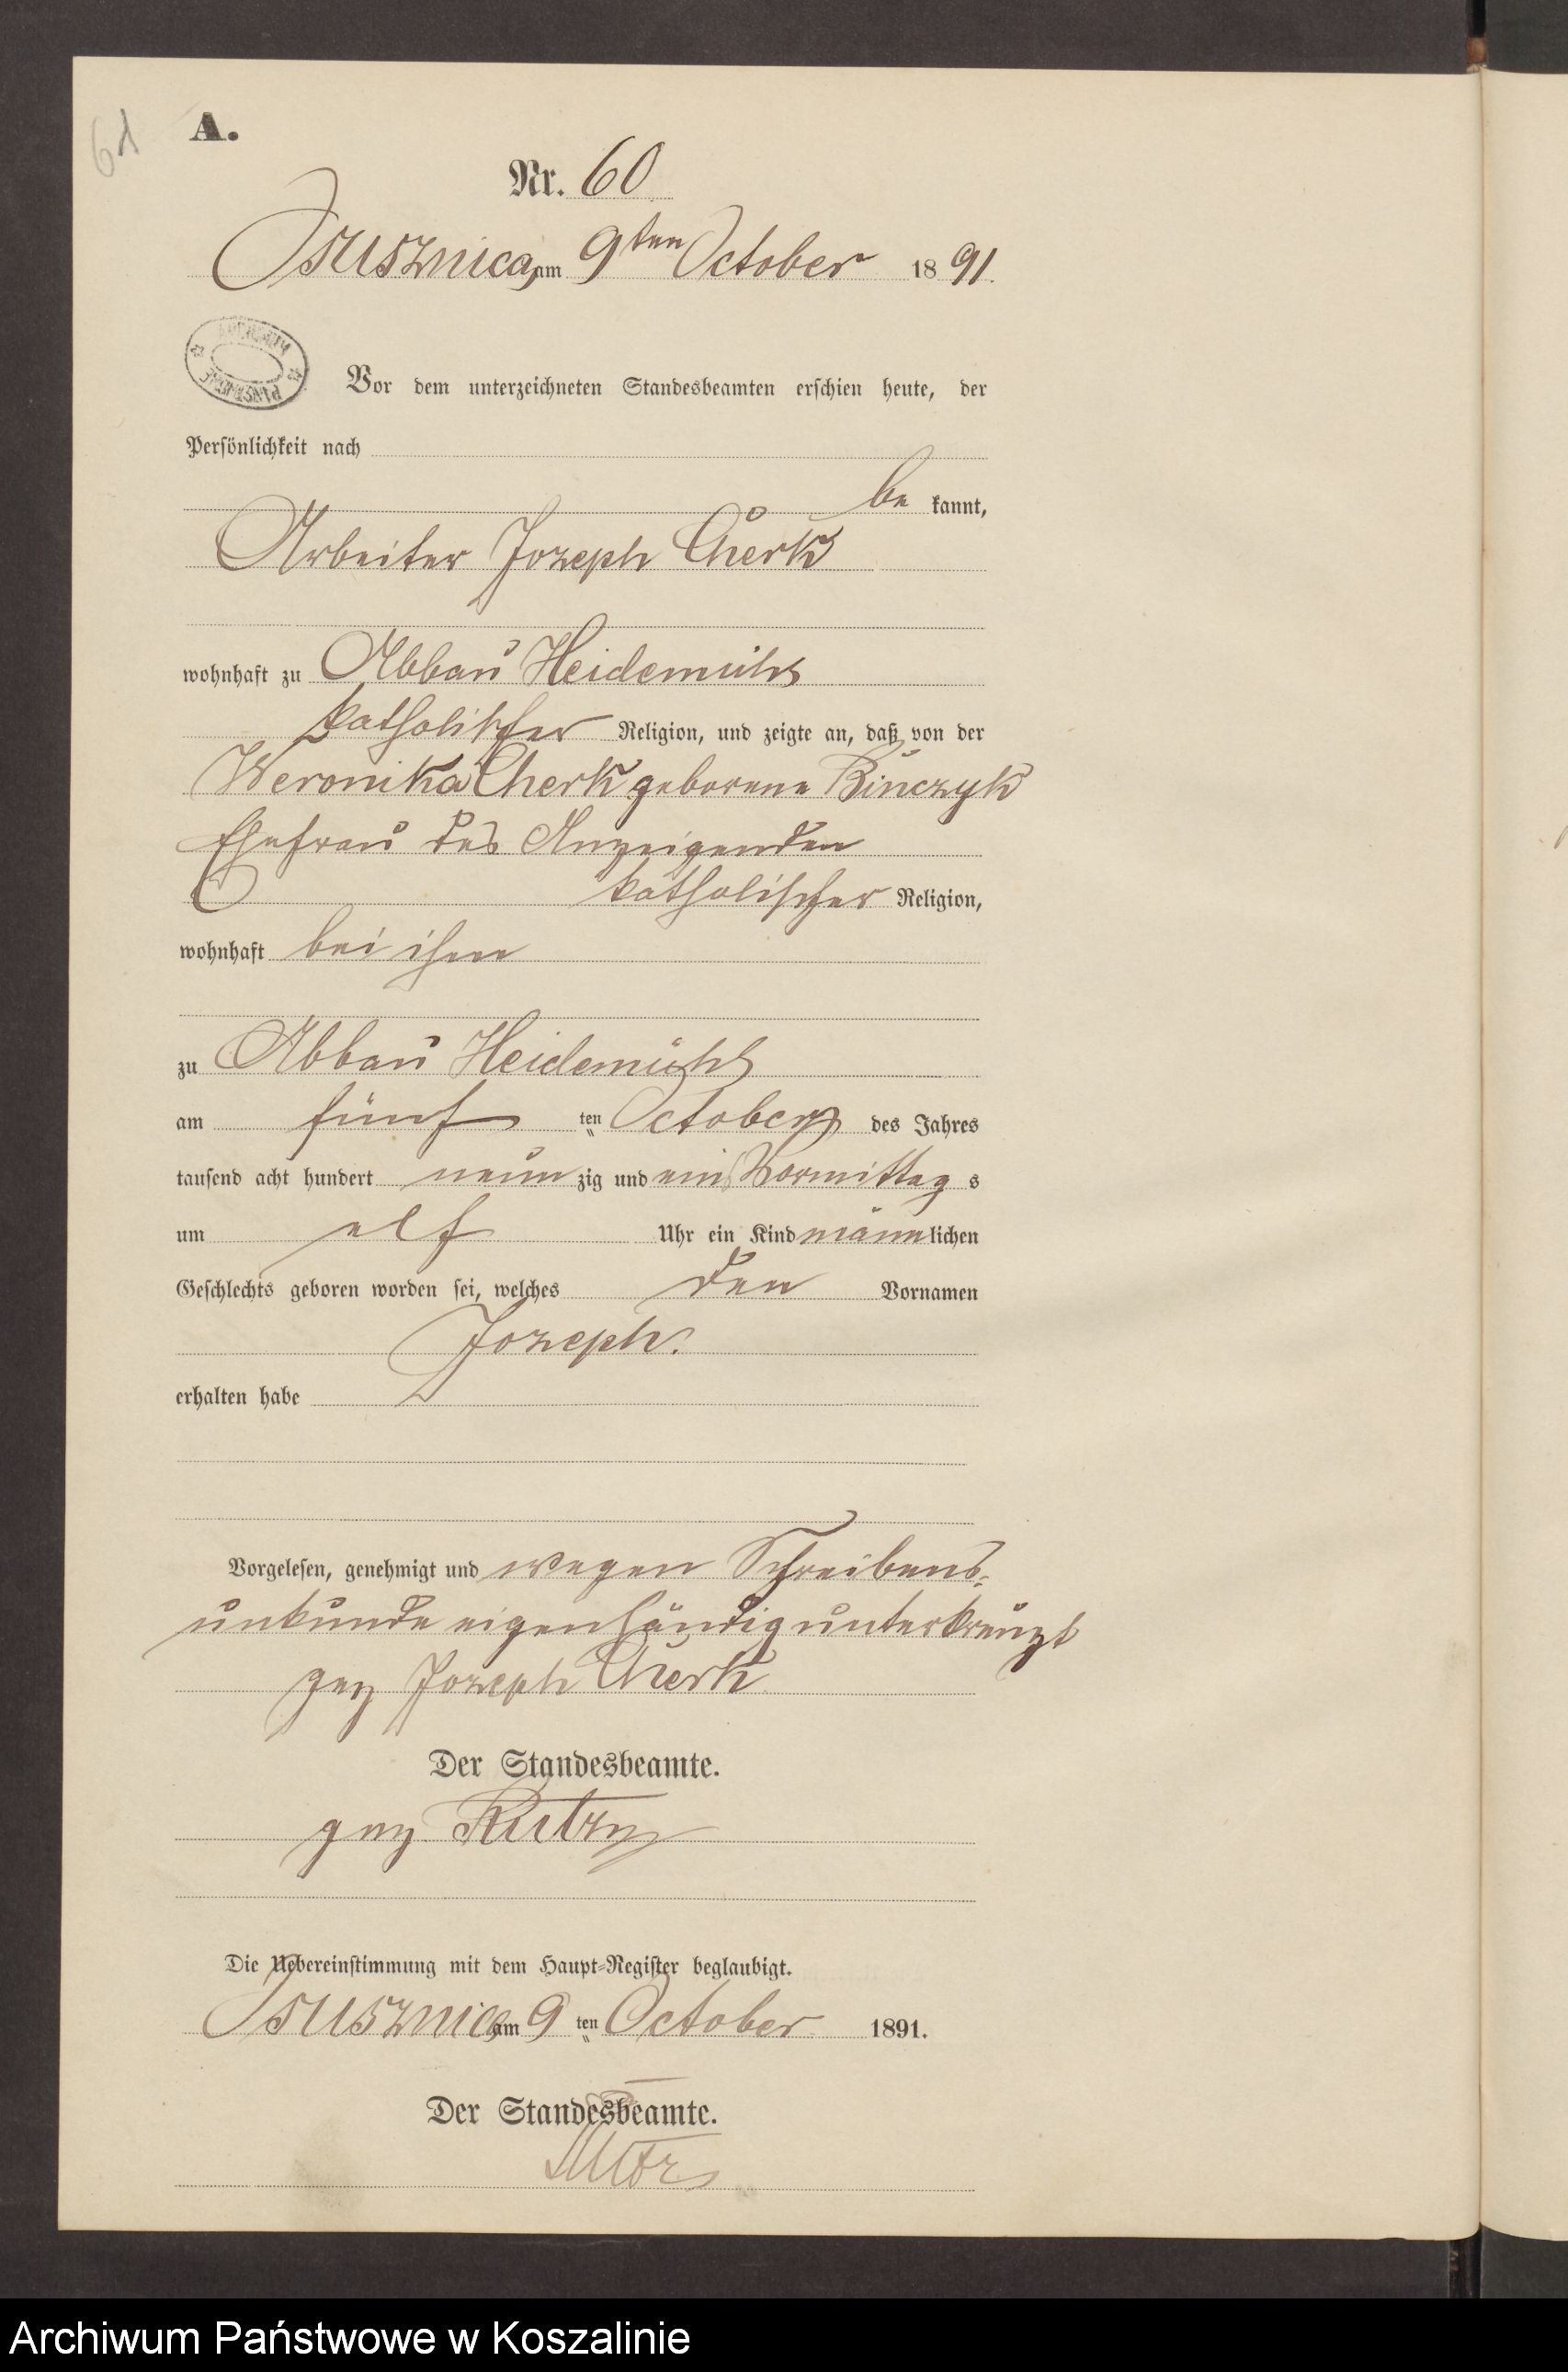 61
A.
Nr. 60
Osusznica, am 9ten October 1891.
Vor dem unterzeichneten Standesbeamten erschien heute, der
Persönlichkeit nach
be kannt,
Arbeiter Jozeph Cherk
wohnhaft zu Abbau Heidemühl
katholischer Religion, und zeigte an, daß von der
Weronika Cherk geborene Binczyk
Ehefrau des Anzeigenden
katholischer Religion,
wohnhaft bei ihm
zu Abbau Heidemühl
am fünf ten October des Jahres
tausend acht hundert neun zig und ein Vormittag s
um elf Uhr ein Kind männ lichen
Geschlechts geboren worden sei, welches den Vornamen
Jozeph.
erhalten habe
Vorgelesen, genehmigt und wegen Schreibens-
unkunde eigenhändig unterkreuzt
gez Jozeph Cherk
Der Standesbeamte.
gez
Die Uebereinstimmung mit dem Haupt-Register beglaubigt.
Osusznica am 9 ten October 1891.
Der Standesbeamte.
Archiwum Państwowe w Koszalinie